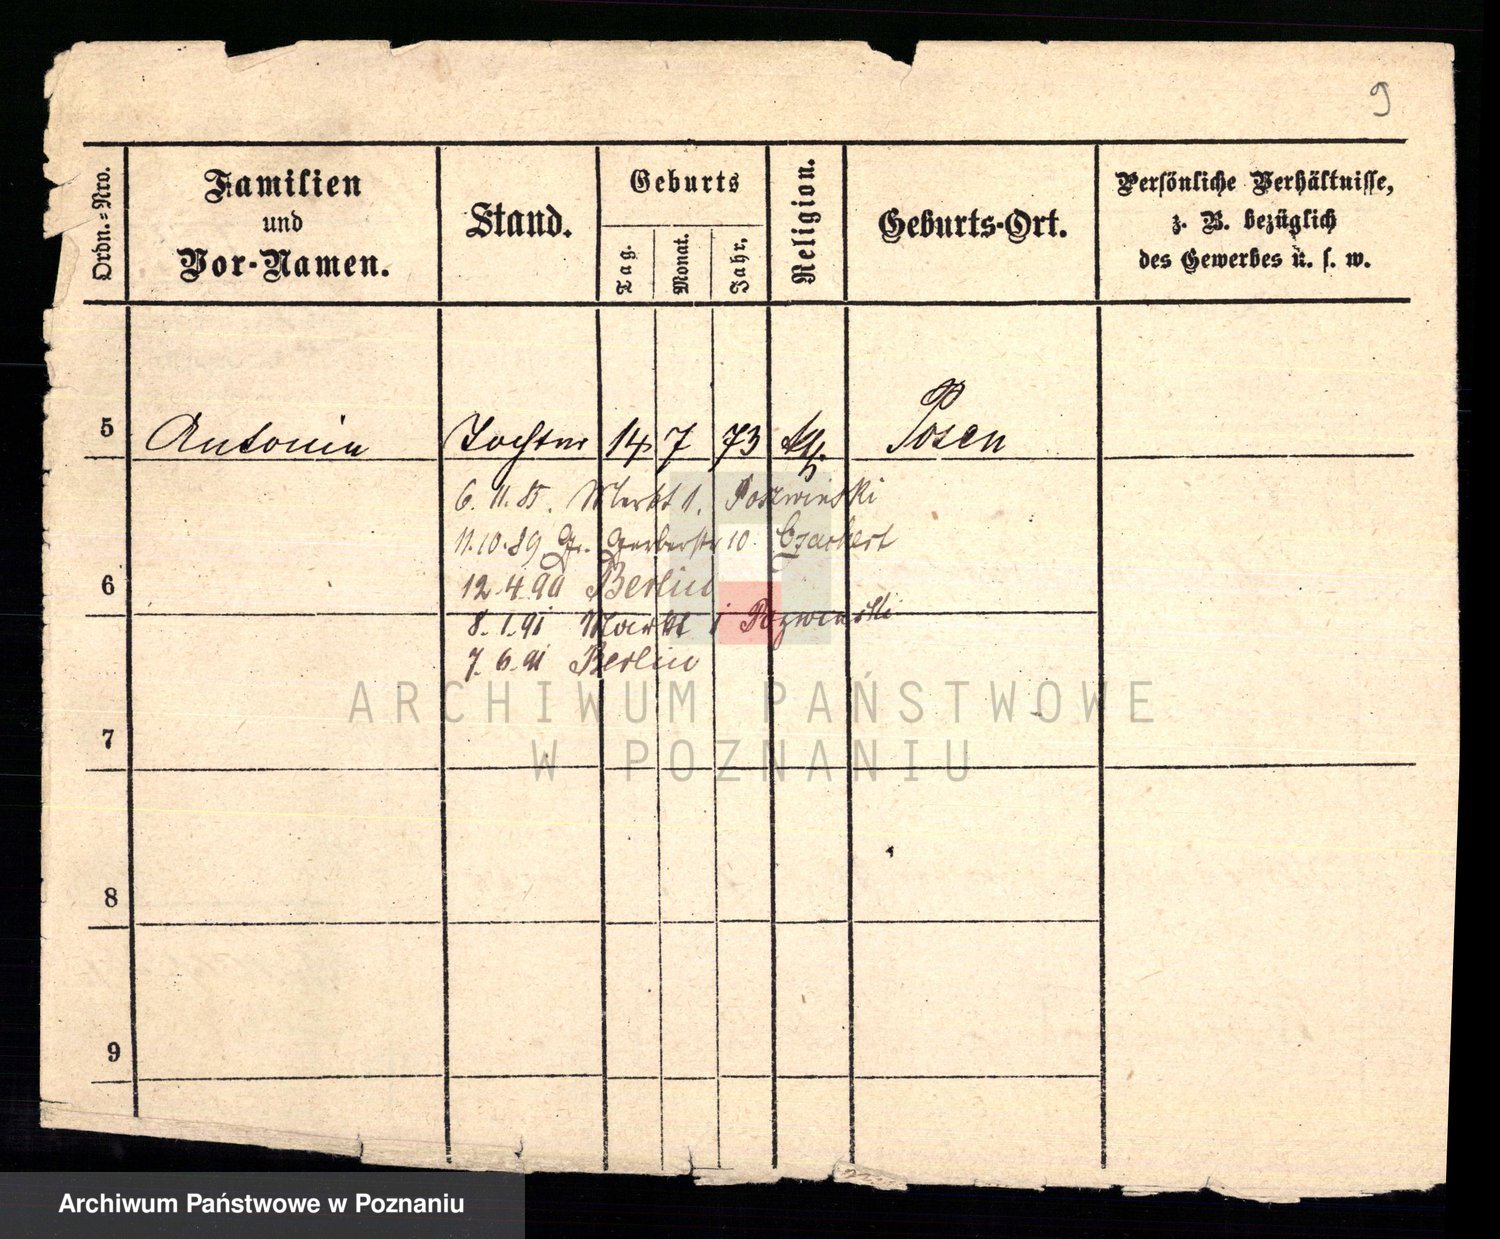 9
Ordn.-Nro.
Familien
und
Vor-Namen.
Stand.
Geburts
Tag.
Monat.
Jahr.
Religion.
Geburts-Ort.
Persönliche Verhältnisse,
z. B. bezüglich
des Gewerbes u. s. w.
5 Antonia Tochter 14 7 73 kth. Posen
6. 11. 85. Markt 1. Poszwinski
11.10.89 Gr. Gerberstr 10
6
12.4.90 Berlin
8.1.91 Markt 1 Pozwinski
7.6.91 Berlin
ARCHIWUM PAŃSTWOWE
W POZNANIU
7
8
9
Archiwum Państwowe w Poznaniu